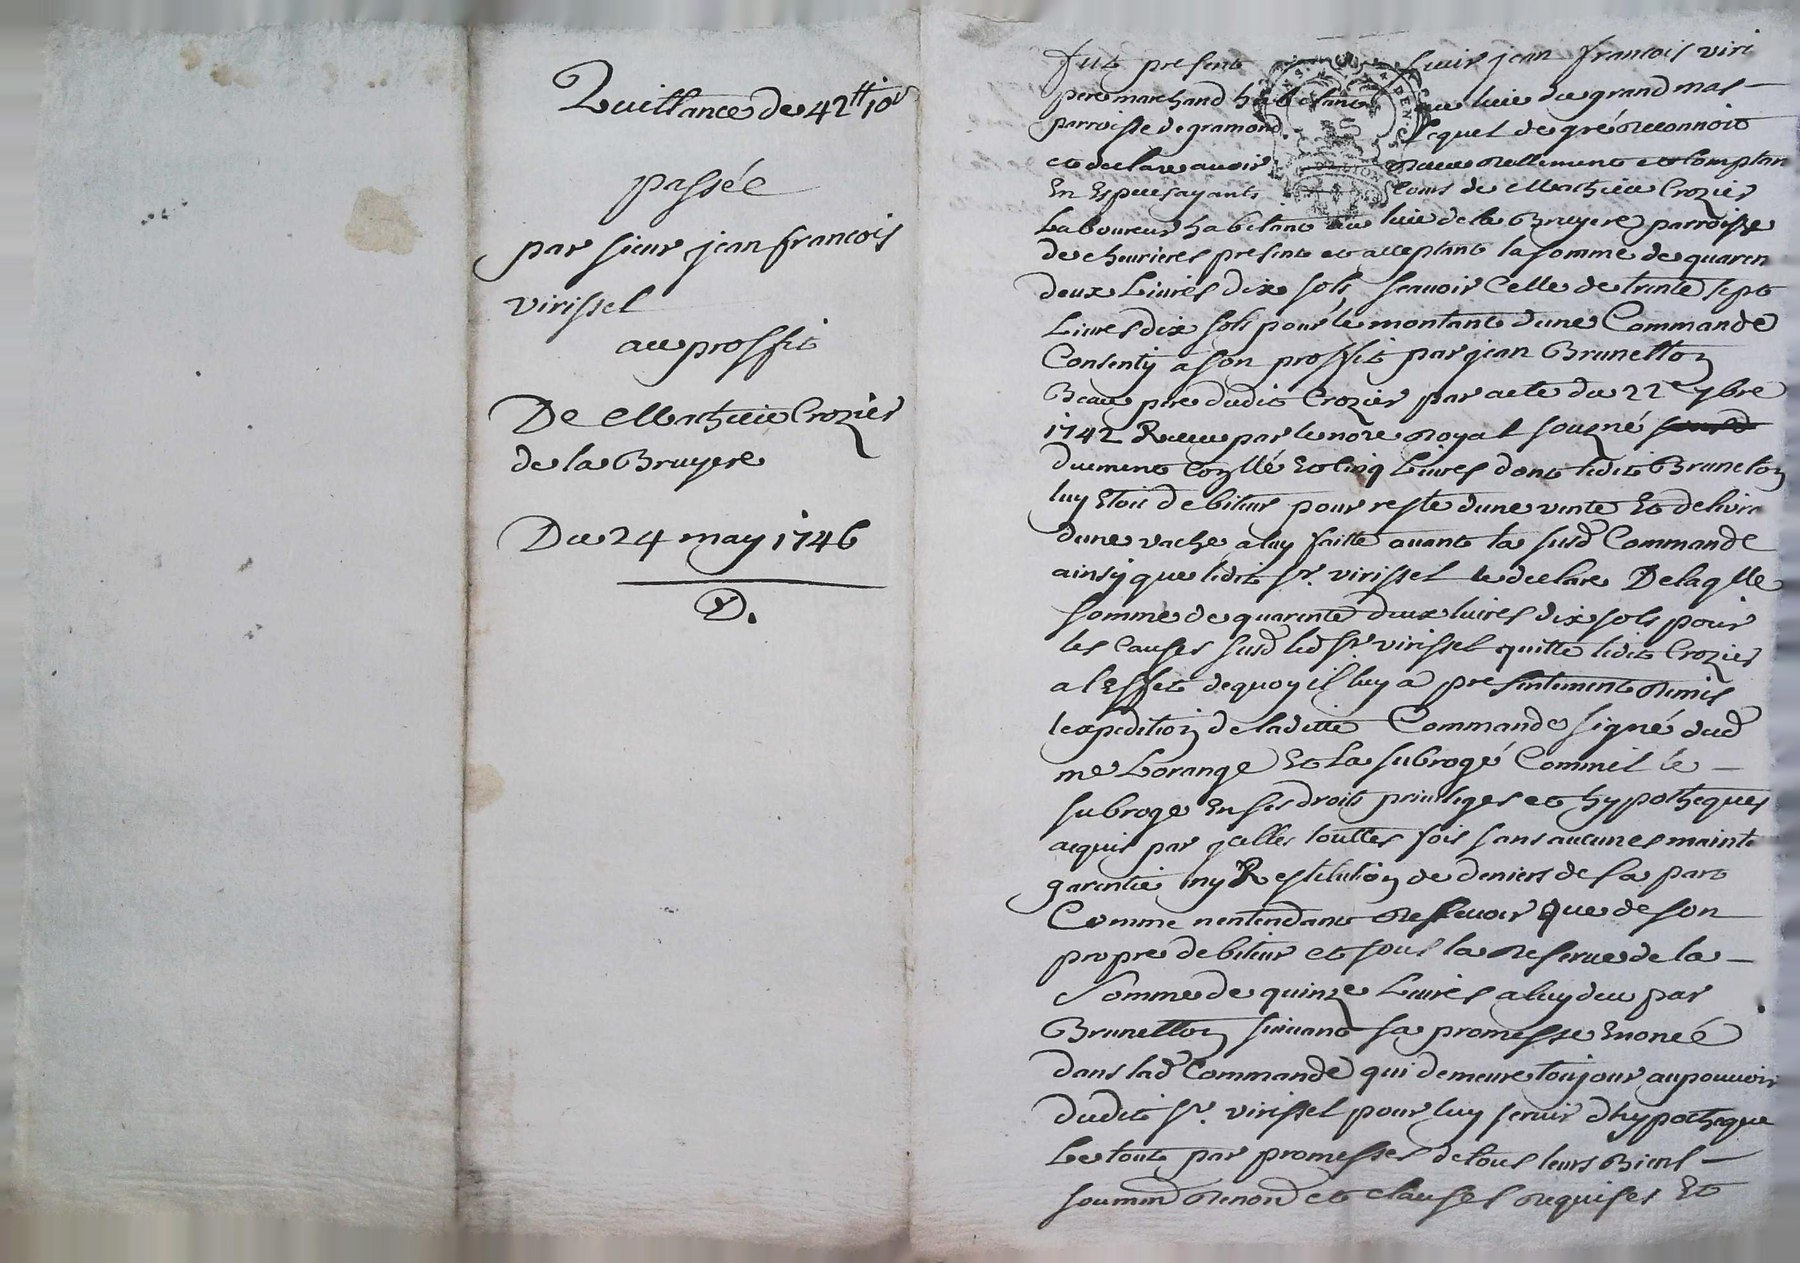 Quittance de 42tt 10s
passée
par sieur jean francois
virissel
au proffit
De Mathieu Crozier
de la Bruyere
Du 24 may 1746
D.
fut present sieur jean francois viri
pere marchand habitant au lieu du grand mas
parroisse de gramond lequel de gré reconnoit
et declare avoir receu réellement et comptan
En Especes ayants cours de Mathieu Crozier
Laboureur habitant au lieu de la Bruyere parroisse
de chevrieres present et acceptant la somme de quaren
deux Livres dix sols scavoir Celle de trente sept
Livres dix sols pour le montant dune Commande
Consenty a son proffit par jean Brunetton
Beau pere dudit Crozier par acte du 22e 7bre
1742 Receu par le nore Royal sousné
duement Conllé Et Cinq Livres dont ledit Bruneton
luy Etoit debiteur pour reste dune vente Et delivra
dune vache a luy faitte avant la susd Commande
ainsy que ledit sr. virissel le declare De laqlle
somme de quarente deux livres dix sols pour
les Causes susd led sr virissel quitte ledit Crozier
a l'Effet de quoy il luy a presentement Remis
lexpedition de laditte Commande signé dud
me Lorange Et La subrogé Comme il le
subroge En ses droits privileges et hypotheques
acquis par jcelle touttes fois sans aucunes mainte
garentie ny Restitution de deniers de sa part
Comme nentendant Recevoir que de son
propre debiteur et sous la Reserve de la
Somme de quinze Livres a luy due par
Brunetton suivant sa promesse Enoncé
dans lad Commande qui demeure toujour au pouvoir
dudit sr. virissel pour luy servir dhypotheque
Le tout par promesses de tous leurs Biens
soummn Renonn et clauses Requises Et